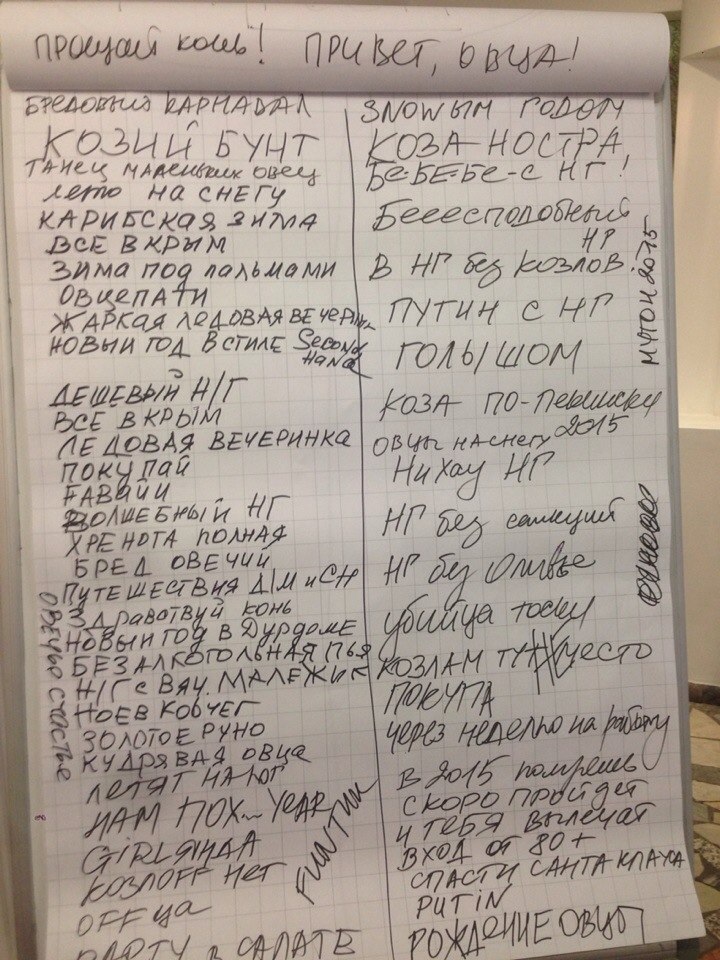 ПРОЩАЙ КОНЬ! ПРИВЕТ, ОВЦА!
БРЕДОВЫЙ КАРНАВАЛ
КОЗИЙ БУНТ
ТАНЕЦ МАЛЕНЬКИХ ОВЕЦ
ЛЕТО НА СНЕГУ
КАРИБСКАЯ ЗИМА
ВСЕ В КРЫМ
ЗИМА ПОД ПАЛЬМАМИ
ОВЦЕПАТИ
ЖАРКАЯ ЛЕДОВАЯ ВЕЧЕРИН
НОВЫЙ ГОД В СТИЛЕ Second
Hand
ДЕШЕВЫЙ Н/Г
ВСЕ В КРЫМ
ЛЕДОВАЯ ВЕЧЕРИНКА
ПОКУПАЙ
ГАВАЙИ
ВОЛШЕБНЫЙ НГ
ХРЕНОТА ПОЛНАЯ
БРЕД ОВЕЧИЙ
ПУТЕШЕСТВИЯ ДМ и СН
Здравствуй конь
НОВЫЙ ГОД В ДУРДОМЕ
БЕЗАЛКОГОЛЬНАЯ ПЬЯ
Н/Г с ВЯЧ. МАЛЕЖИК
НОЕВ КОВЧЕГ
ЗОЛОТОЕ РУНО
КУДРЯВАЯ ОВЦА
ЛЕТЯТ НА ЮГ
НАМ ПОХ... YEAR
GIRLЯНДА
КОЗЛОFF НЕТ
OFFЦА
PARTY в САЛАТЕ
ОВЕЧЬЕ СЧАСТЬЕ
FUNТИК
ЗNOWЫМ ГОДОМ
КОЗА НОСТРА,
БЕ-БЕ-БЕ-С НГ!
Бееесподобный
НГ
В НГ без КОЗЛОВ!
ПУТИН С НГ
ГОЛЫШОМ
КОЗА ПО-ПЕКИНСКИ
ОВЦЫ НА СНЕГУ 2015
Нихау НГ
НГ без санкций
НГ без Оливье
убийца тоски
КОЗЛАМ ТУТ МЕСТО
ПОКУПА
через неделю на работу
в 2015 помрешь
СКОРО ПРОЙДЕТ
И ТЕБЯ ВЫЛЕЧАТ
ВХОД ОТ 80+
СПАСТИ САНТА КЛАУСА
PUTIN
РОЖДЕНИЕ ОВЦЫ
МУТОН 2015